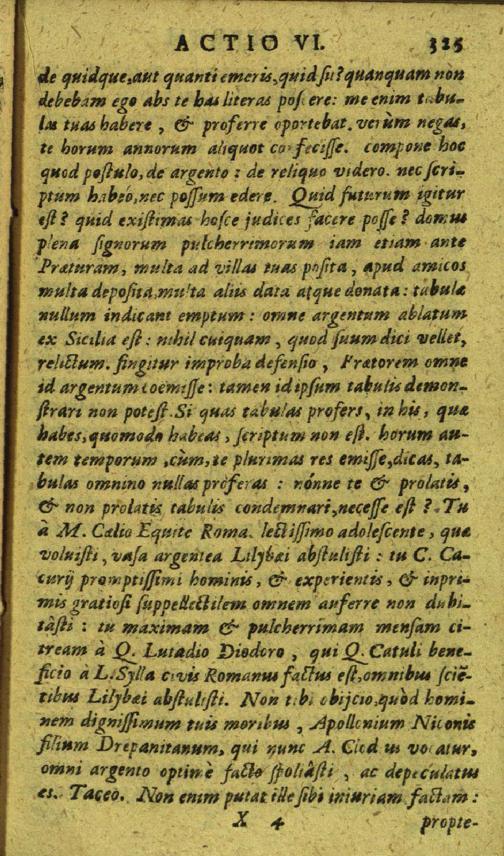 ACTIO VI. 325
de quidque, aut quanti emeris, quid ſu? quanquam non
debebam ego abs te has literas poſcere: me enim tabu-
las tuas habere, & proferre oportebat. verùm negas,
te horum annorum aliquot confeciſſe. compone hoc
quod poſtulo, de argento: de reliquo videro. nec ſcri-
ptum habeo, nec poſſum edere. Quid futurum igitur
eſt? quid exiſtimas hoſce judices facere poſſe? domus
plena ſignorum pulcherrimorum iam etiam ante
Præturam, multa ad villas tuas poſita, apud amicos
multa depoſita, multa aliis data atque donata: tabulæ
nullum indicant emptum: omne argentum ablatum
ex Sicilia eſt: nihil cuiquam, quod ſuum dici vellet,
relictum. fingitur improba defenſio, Prætorem omne
id argentum coemiſſe: tamen id ipſum tabulis demon-
ſtrari non poteſt. Si quas tabulas profers, in his, quæ
habes, quomodo habeas, ſcriptum non eſt. horum au-
tem temporum, cùm, te plurimas res emiſſe, dicas, ta-
bulas omnino nullas proferas: nónne te & prolatis,
& non prolatis tabulis condemnari, neceſſe eſt? Tu
à M. Cælio Equite Roma. lectiſſimo adoleſcente, quæ
voluiſti, vaſa argentea Lilybæi abſtuliſti: tu C. Ca-
curij promptiſſimi hominis, & experientis, & inpri-
mis gratioſi ſuppellectilem omnem auferre non dubi-
tâſti: tu maximam & pulcherrimam menſam ci-
tream à Q. Lutadio Diodoro, qui Q. Catuli bene-
ficio à L. Sylla civis Romanus factus eſt, omnibus ſciē-
tibus Lilybæi abſtuliſti. Non tibi obijcio, quòd homi-
nem digniſſimum tuis moribus, Apollonium Niconis
filium Drepanitanum, qui nunc A. Clodius vocatur,
omni argento optimè facto ſpoliâſti, ac depeculatus
es. Taceo. Non enim putat ille ſibi iniuriam factam:
X 4 propte-